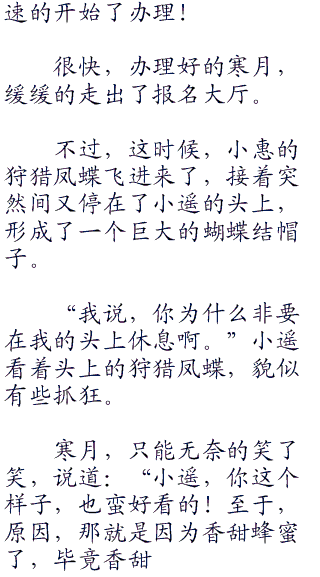 速的开始了办理！
很快，办理好的寒月，
缓缓的走出了报名大厅。
不过，这时候，小惠的
狩猎凤蝶飞进来了，接着突
然间又停在了小遥的头上，
形成了一个巨大的蝴蝶结帽
子。
“我说，你为什么非要
在我的头上休息啊。”小遥
看着头上的狩猎凤蝶，貌似
有些抓狂。
寒月，只能无奈的笑了
笑，说道：“小遥，你这个
样子，也蛮好看的！至于，
原因，那就是因为香甜蜂蜜
了，毕竟香甜